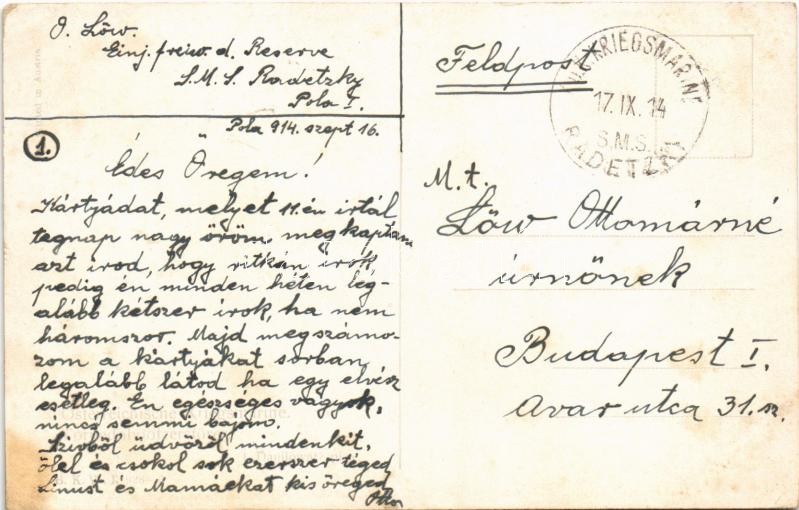 O. Löw.
Einj. freiw. d. Reserve
S.M.S. Radetzky
Pola I.
Pola 914. szept 16.
1.
Édes Öregem!
Kártyádat, melyet 11.én írtál
tegnap nagy öröm. megkaptam
azt irod, hogy ritkán irok,
pedig én minden héten leg-
alább kétszer irok, ha nem
háromszor. Majd megszámo-
zom a kártyákat sorban,
legalább látod ha egy elvész
esetleg. Én egészséges vagyok,
nincs semmi bajom.
Szivből üdvözöl mindenkit,
ölel és csokol sok ezerszer téged
Linust és Mamáékat kis öreged
Otto
Feldpost
K.u.K. KRIEGSMARINE
17. IX. 14
S.M.S.
RADETZKY
M. t.
Löw Ottomárné
úrnőnek
Budapest I.
Avar utca 31. sz.
Österreichische Kriegsmarine.